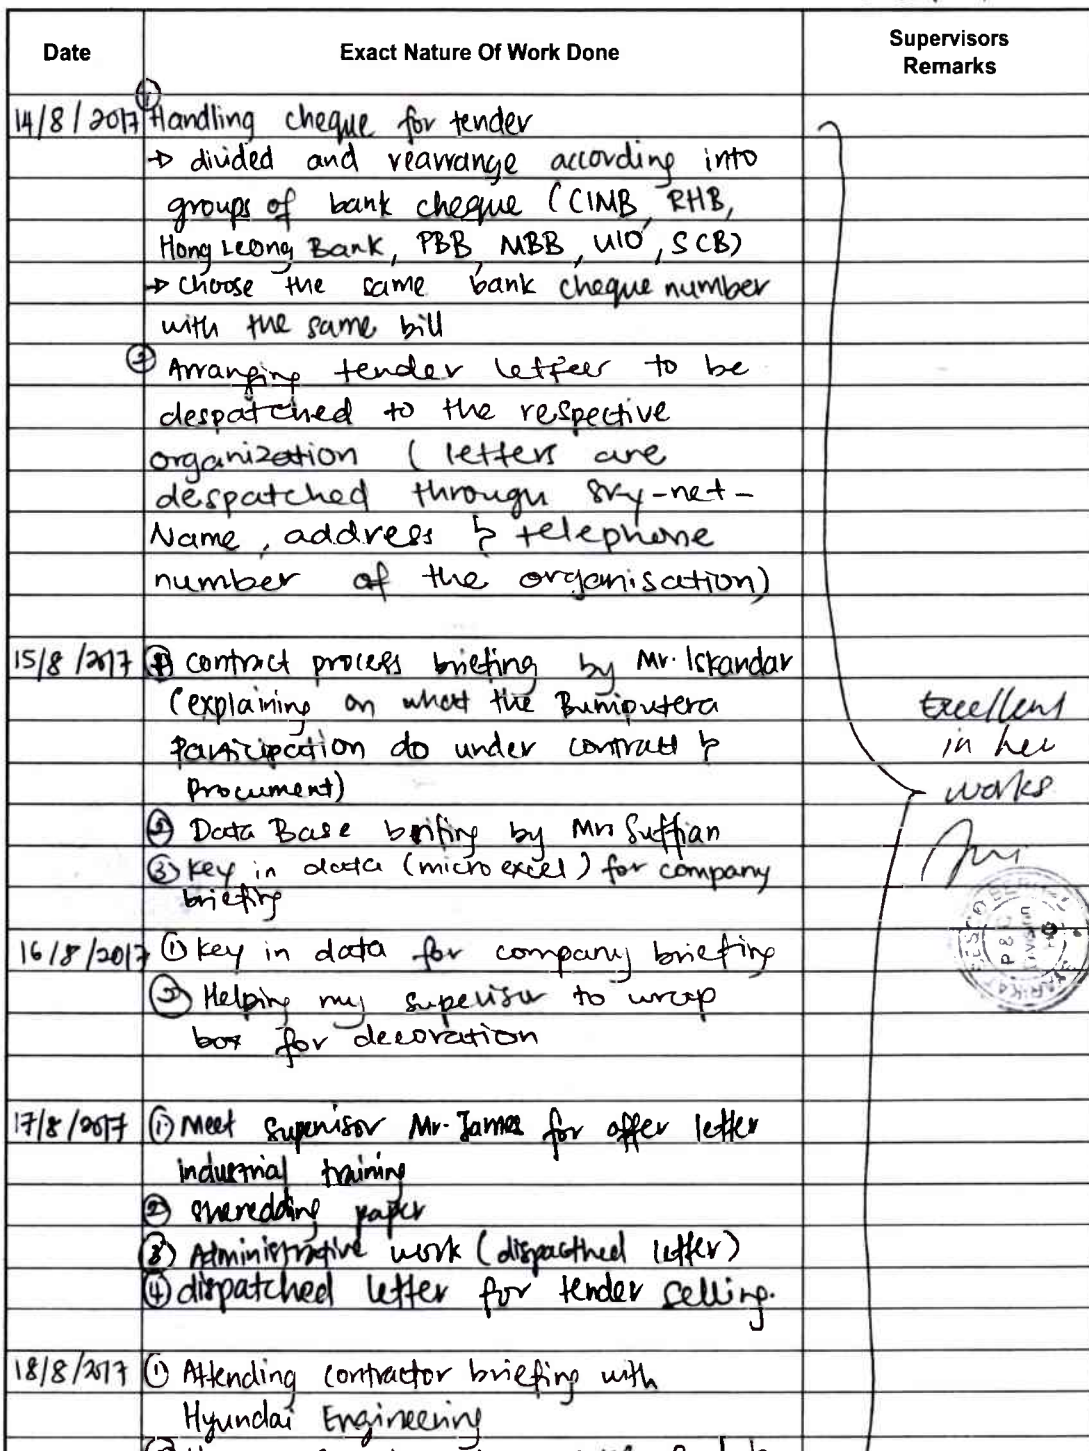 Date Exact Nature Of Work Done Supervisors
Remarks
①
14/8/2017 Handling cheque for tender
→ divided and rearrange according into
groups of bank cheque (CIMB, RHB,
Hong Leong Bank, PBB, MBB, UIO, SCB)
→ choose the same bank cheque number
with the same bill
② Arranging tender letter to be
despatched to the respective
organization ( letters are
despatched through sky-net-
Name, address & telephone
number of the organisation)
15/8/2017 ① contract process briefing by Mr. Iskandar
(explaining on what the Bumiputera
Participation do under contract &
Procument)
② Data Base briefing by Mr Suffian
③ key in data (micro excel) for company
briefing
Excellent
in her
works
16/8/2017 ① key in data for company briefing
② Helping my supervisor to wrap
box for decoration
P & C
Division
HQ
17/8/2017 ① Meet supervisor Mr. James for offer letter
industrial training
② shredding paper
③ Administrative work (dispacthed letter)
④ dispatched letter for tender selling.
18/8/2017 ① Attending contractor briefing with
Hyundai Engineering